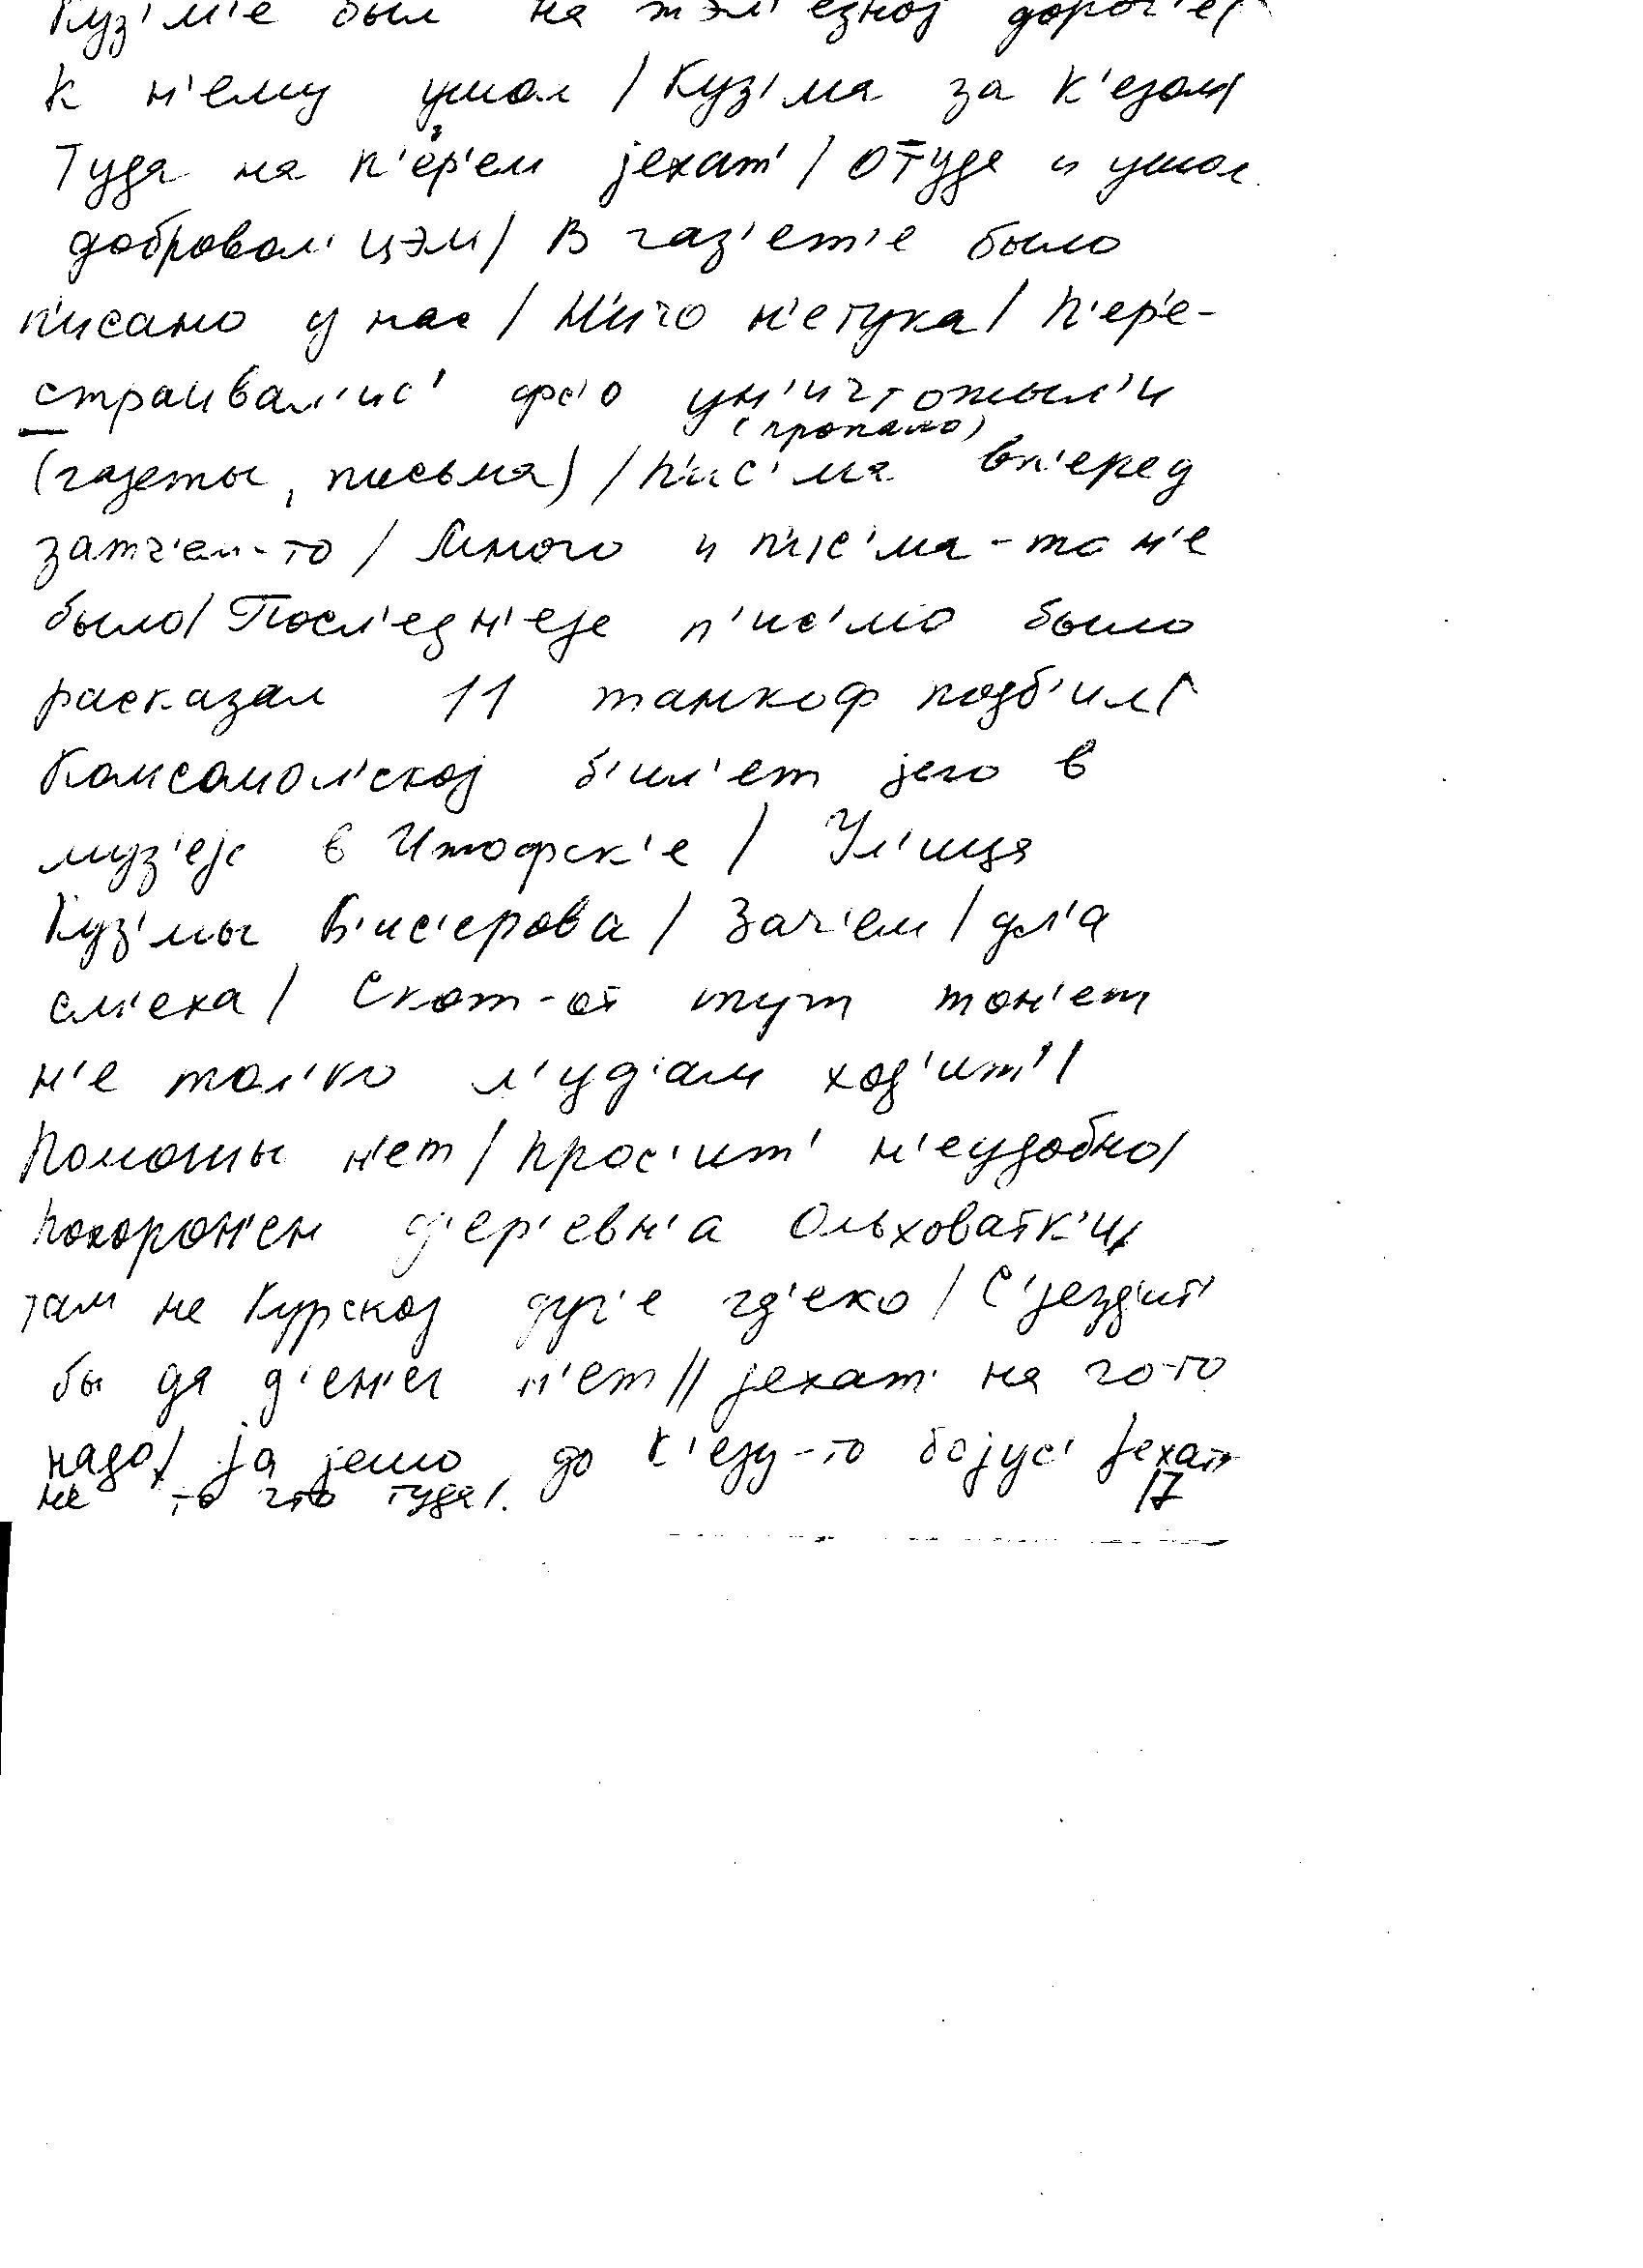 Куз'м'е был на жэл'езној дорог'е/
К н'ему ушол / Куз'ма за К'езом/
Туда на п'ер'ем јехат' / оттуда и ушол
добровол'цэм / В газ'ет'е было
п'исано у нас / Н'ичо н'етука / П'ер'е-
страивал'ис' фс'о ун'ичтожыл'и
(пропало)
(газеты, письма) / П'ис'ма вп'еред
затч'ем-то / Много и п'ис'ма-то н'е
было / Посл'едн'еје п'ис'мо было
расказал 11 танкоф подб'ил /
Комсомол'ској б'ил'ет јего в
муз'еје в Ижофск'е / Ул'ица
Куз'мы Б'ис'ерова / Зач'ем / дл'а
см'еха / Скот-от тут тон'ет
н'е тол'ко л'уд'ам ход'ит' /
Помошы н'ет / прос'ит' н'еудобно /
Похорон'ен д'ер'евн'а Ольховатк'и
там на Курској дуг'е гд'еко / С'језд'ит'
бы да д'ен'ег н'ет // јехат' на го-то
надо / ја јешо до К'езу-то бојус' јехат'
не то что туда /.
17